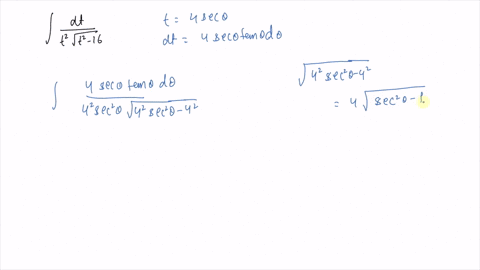 ∫ dt / (t² √(t² - 16))
t = 4 secθ
dt = 4 secθ tanθ dθ
∫ 4 secθ tanθ dθ / (4² sec²θ √(4² sec²θ - 4²))
√(4² sec²θ - 4²)
= 4 √(sec²θ - 1